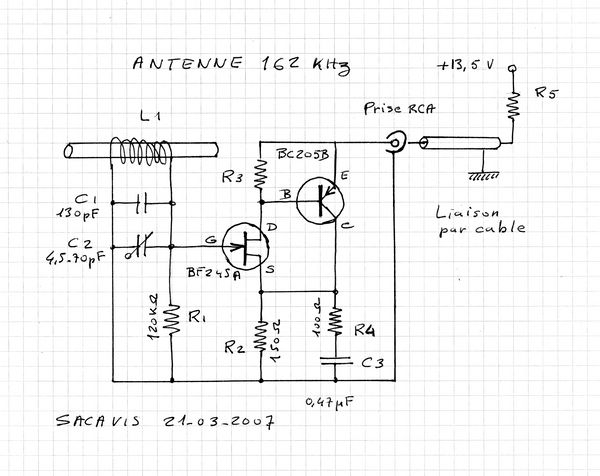 ANTENNE 162 KHz
+13,5 V
R5
Prise RCA
L1
BC205B
R3
E
B
C
C1
130pF
Liaison
par cable
C2
4,5-70pF
G
D
S
BF245A
120KΩ
R1
R2
150Ω
100Ω
R4
C3
0,47µF
SACAVIS 21-03-2007